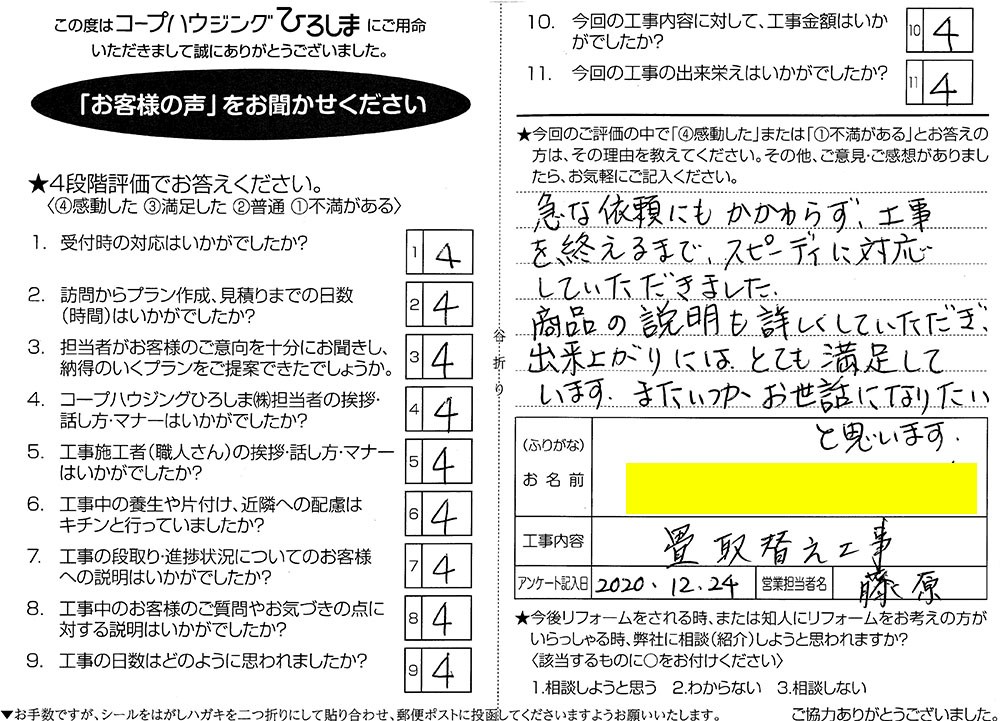 この度はコープハウジングひろしまにご用命
いただきまして誠にありがとうございました。
「お客様の声」をお聞かせください
★4段階評価でお答えください。
〈④感動した ③満足した ②普通 ①不満がある〉
1. 受付時の対応はいかがでしたか?
1 4
2. 訪問からプラン作成、見積りまでの日数
(時間)はいかがでしたか?
2 4
3. 担当者がお客様のご意向を十分にお聞きし、
納得のいくプランをご提案できたでしょうか。
3 4
4. コープハウジングひろしま㈱担当者の挨拶・
話し方・マナーはいかがでしたか?
4 4
5. 工事施工者(職人さん)の挨拶・話し方・マナー
はいかがでしたか?
5 4
6. 工事中の養生や片付け、近隣への配慮は
キチンと行っていましたか?
6 4
7. 工事の段取り・進捗状況についてのお客様
への説明はいかがでしたか?
7 4
8. 工事中のお客様のご質問やお気づきの点に
対する説明はいかがでしたか?
8 4
9. 工事の日数はどのように思われましたか?
9 4
谷折り
10. 今回の工事内容に対して、工事金額はいか
がでしたか?
10 4
11. 今回の工事の出来栄えはいかがでしたか?
11 4
★今回のご評価の中で「④感動した」または「①不満がある」とお答えの
方は、その理由を教えてください。その他、ご意見・ご感想がありまし
たら、お気軽にご記入ください。
急な依頼にもかかわらず、工事
を終えるまで、スピーディに対応
していただきました。
商品の説明も詳しくしていただき、
出来上がりには、とても満足して
います。またいつか、お世話になりたい
と思います。
(ふりがな)
お名前
工事内容 畳取替え工事
アンケート記入日 2020.12.24 営業担当者名 藤原
★今後リフォームをされる時、または知人にリフォームをお考えの方が
いらっしゃる時、弊社に相談(紹介)しようと思われますか?
〈該当するものに○をお付けください〉
1.相談しようと思う 2.わからない 3.相談しない
▼お手数ですが、シールをはがしハガキを二つ折りにして貼り合わせ、郵便ポストに投函してくださいますようお願いいたします。 ご協力ありがとうございました。